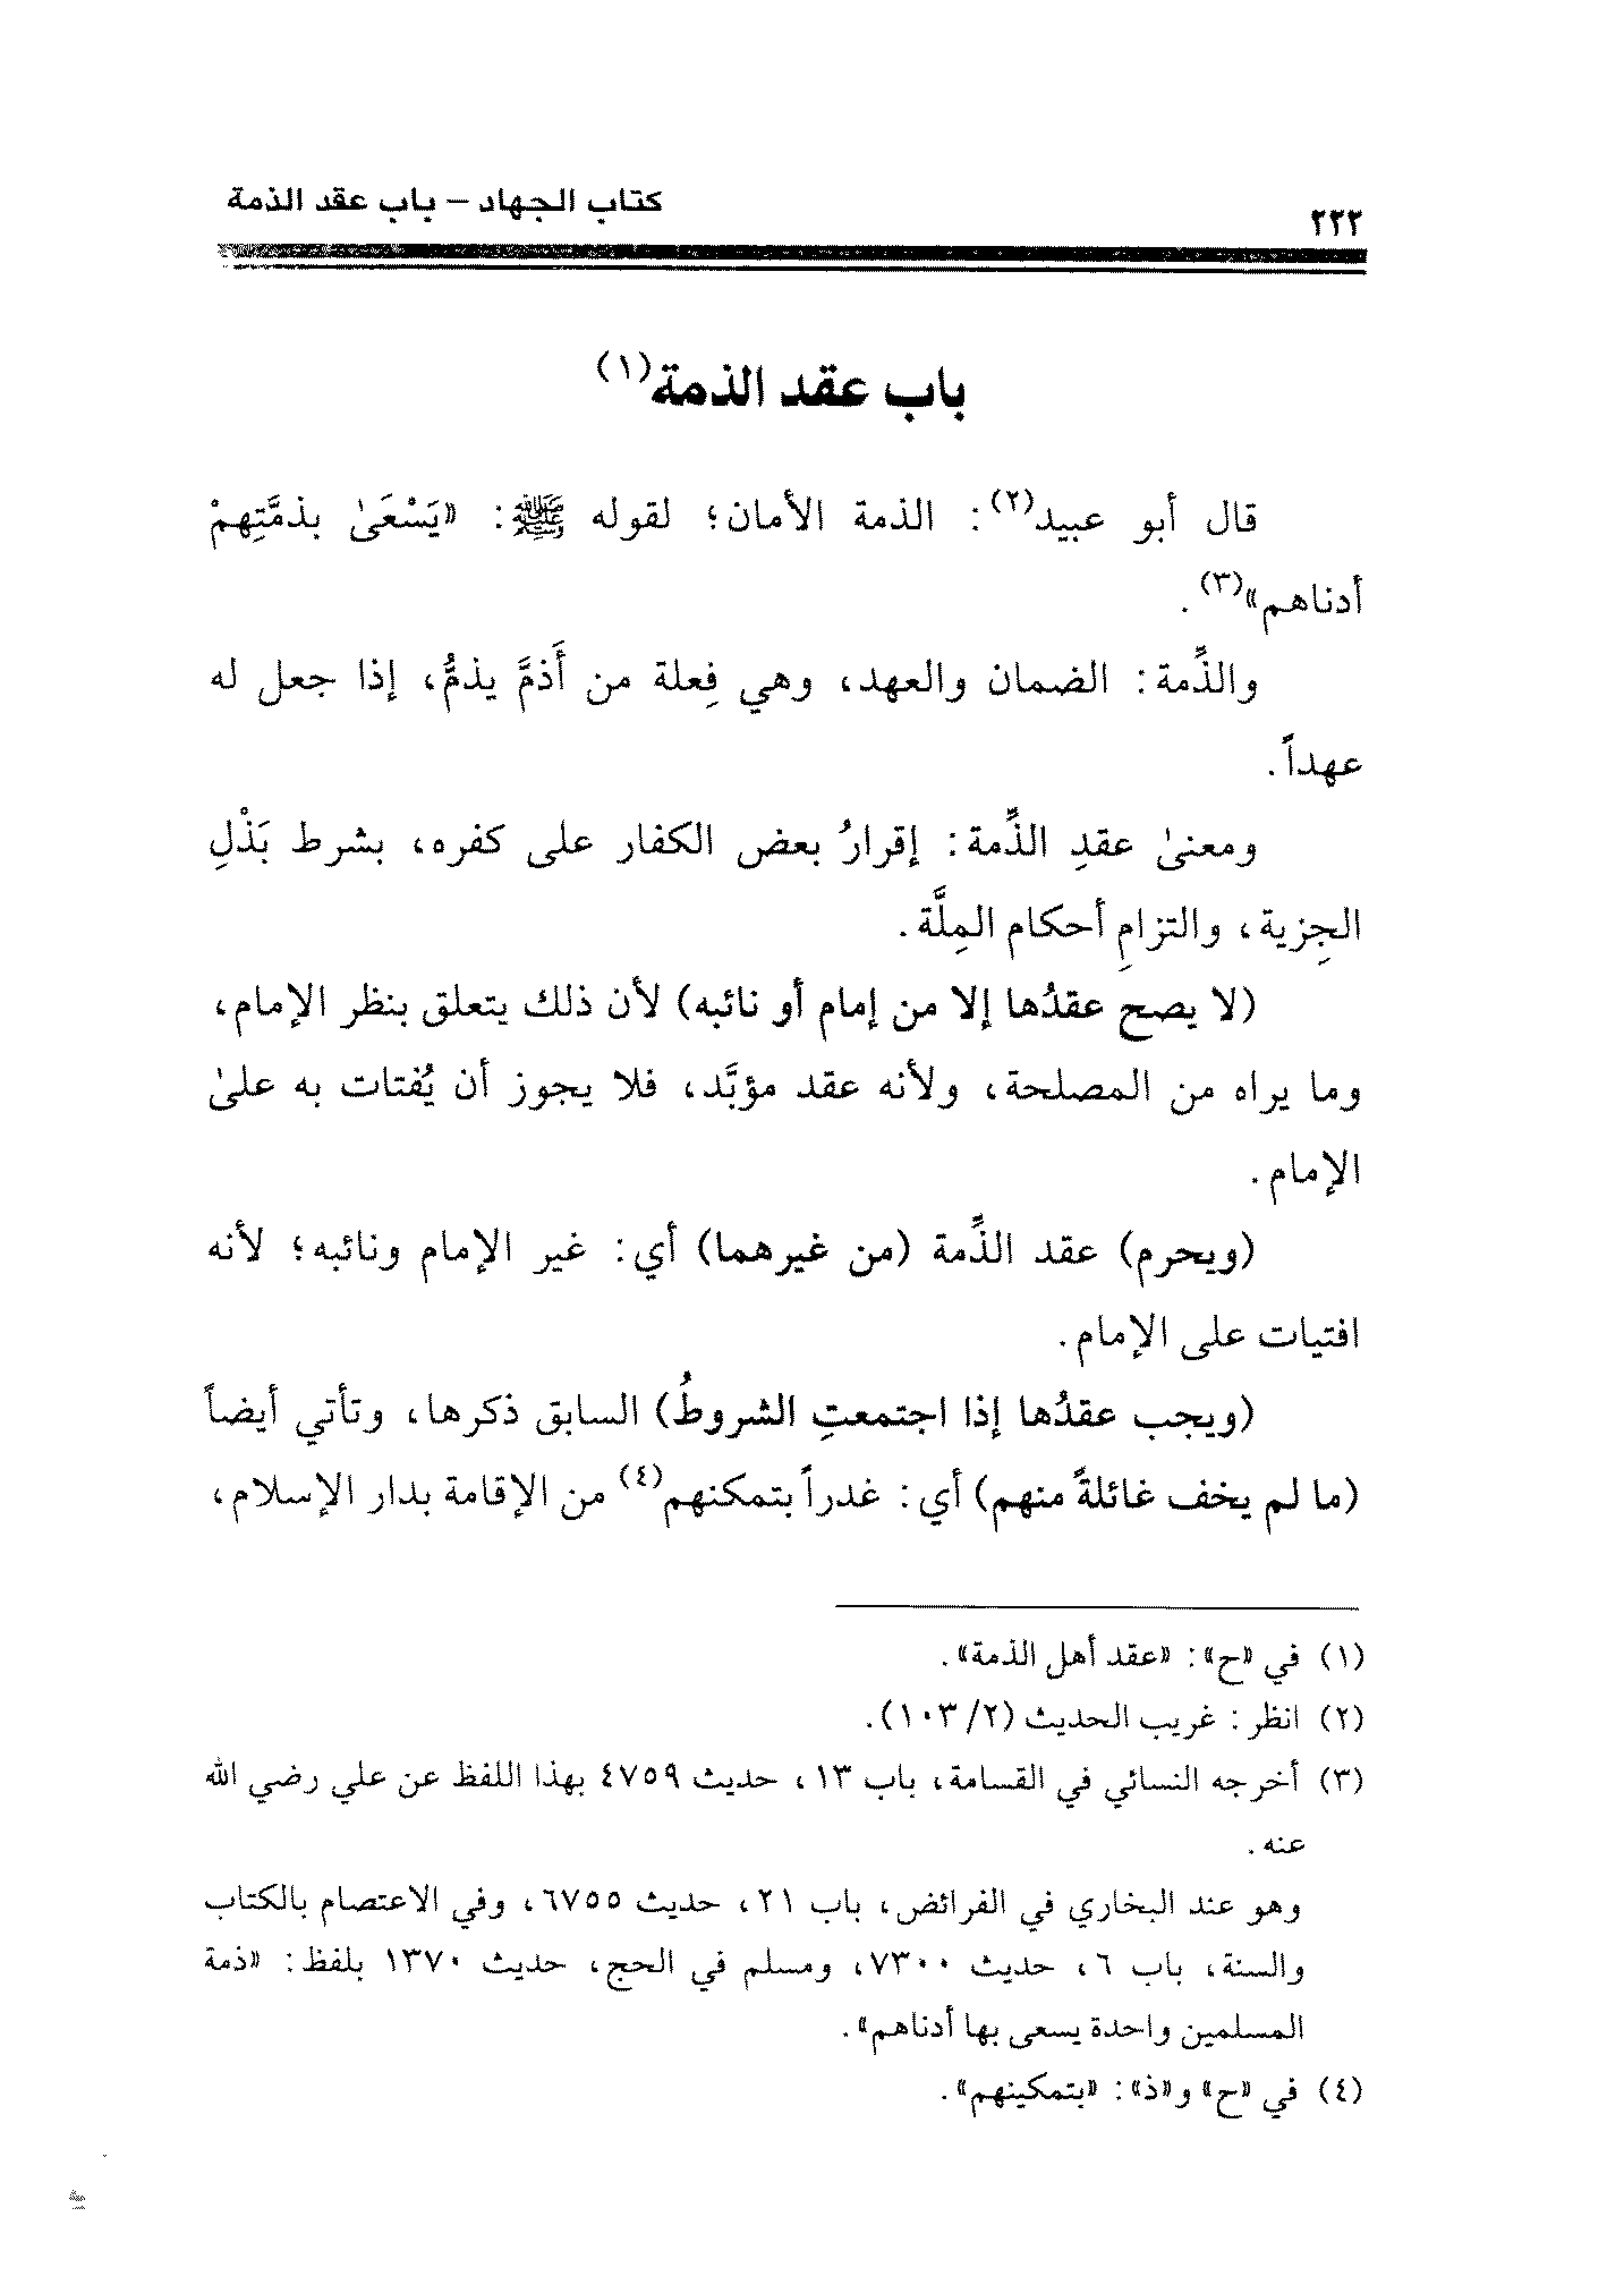 ٢٢٢
كتاب الجهاد – باب عقد الذمة
باب عقد الذمة(١)
قال أبو عبيد(٢): الذمة الأمان؛ لقوله ﷺ: «يَسْعَىٰ بذمَّتِهمْ
أدناهم»(٣).
والذِّمة: الضمان والعهد، وهي فِعلة من أَذمَّ يذمُّ، إذا جعل له
عهداً.
ومعنىٰ عقدِ الذِّمة: إقرارُ بعض الكفار على كفره، بشرط بَذْلِ
الجِزية، والتزامِ أحكام المِلَّة.
(لا يصح عقدُها إلا من إمام أو نائبه) لأن ذلك يتعلق بنظر الإمام،
وما يراه من المصلحة، ولأنه عقد مؤبَّد، فلا يجوز أن يُفتات به علىٰ
الإمام.
(ويحرم) عقد الذِّمة (من غيرهما) أي: غير الإمام ونائبه؛ لأنه
افتيات على الإمام.
(ويجب عقدُها إذا اجتمعتِ الشروطُ) السابق ذكرها، وتأتي أيضاً
(ما لم يخف غائلةً منهم) أي: غدراً بتمكنهم(٤) من الإقامة بدار الإسلام،
(١) في «ح»: «عقد أهل الذمة».
(٢) انظر: غريب الحديث (٢/ ١٠٣).
(٣) أخرجه النسائي في القسامة، باب ١٣، حديث ٤٧٥٩ بهذا اللفظ عن علي رضي الله
عنه.
وهو عند البخاري في الفرائض، باب ٢١، حديث ٦٧٥٥، وفي الاعتصام بالكتاب
والسنة، باب ٦، حديث ٧٣٠٠، ومسلم في الحج، حديث ١٣٧٠ بلفظ: «ذمة
المسلمين واحدة يسعى بها أدناهم».
(٤) في «ح» و«ذ»: «بتمكينهم».